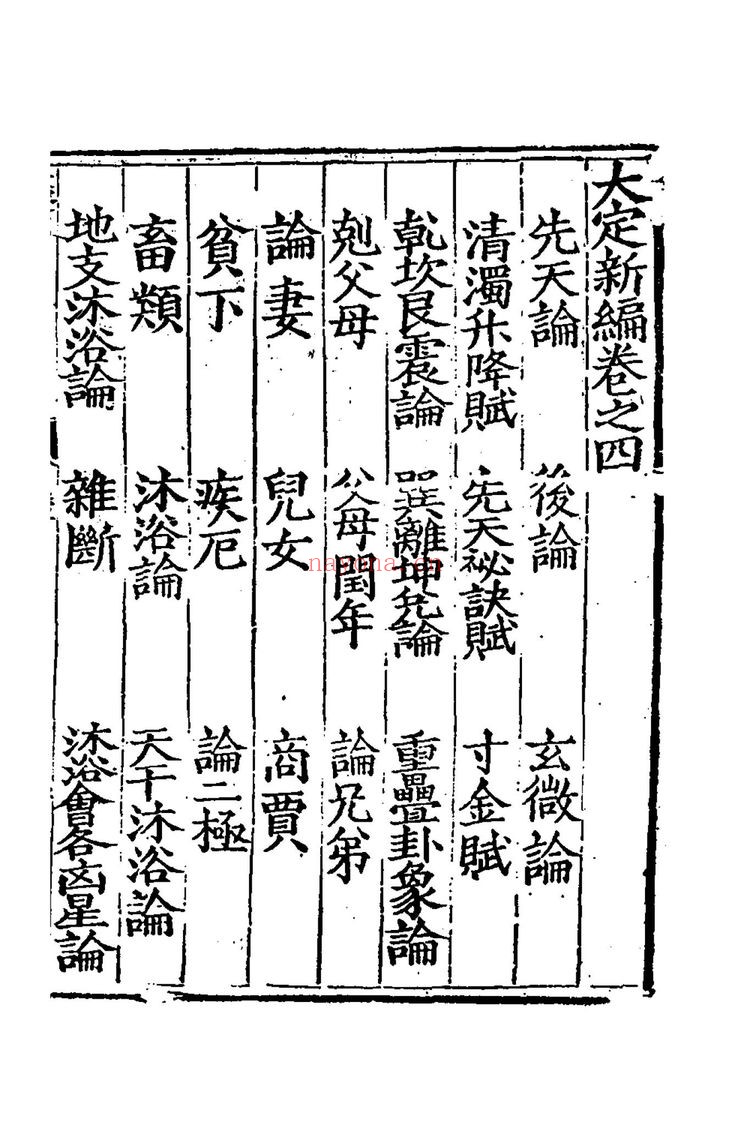 大定新編卷之四
先天論　後論　玄微論
清濁升降賦　先天祕訣賦　寸金賦
乾坎艮震論　巽離坤兌論　重疊卦象論
剋父母　父母閏年　論兄弟
論妻　兒女　商賈
貧下　疾厄　論二極
畜類　沐浴論　天干沐浴論
地支沐浴論　雜斷　沐浴會各凶星論